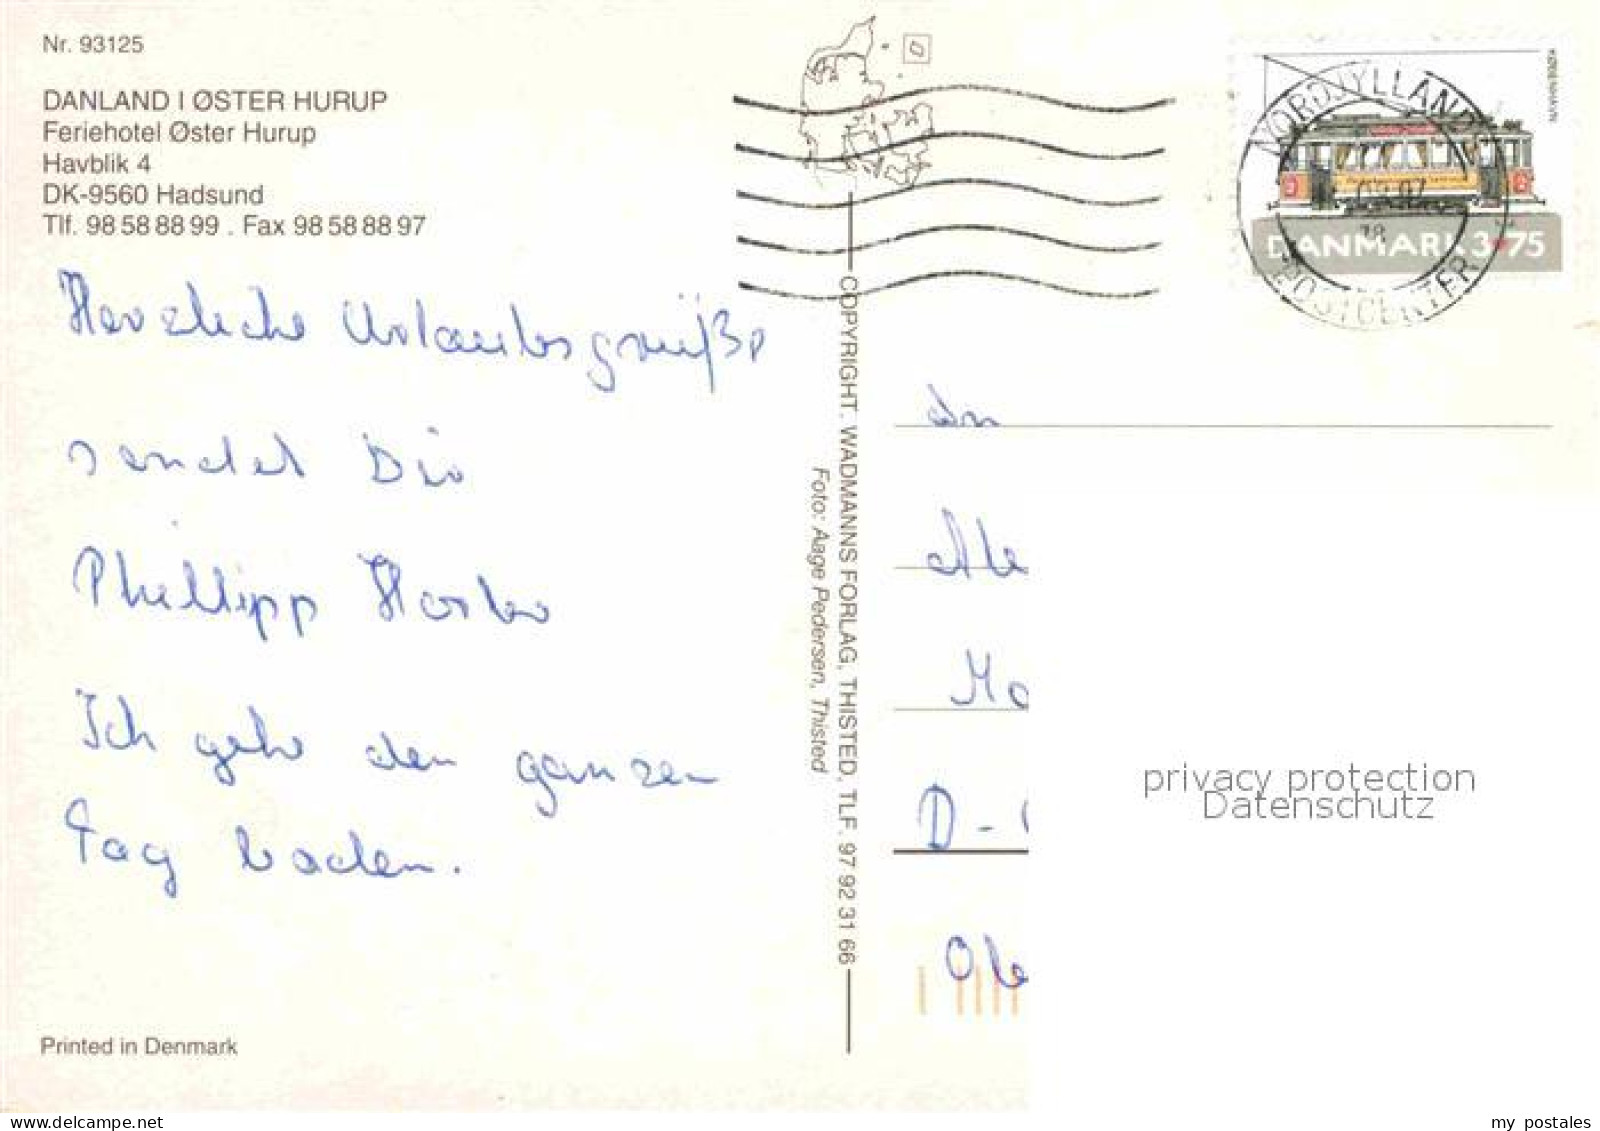 Nr. 93125
DANLAND I ØSTER HURUP
Feriehotel Øster Hurup
Havblik 4
DK-9560 Hadsund
Tlf. 98 58 88 99 . Fax 98 58 88 97
Herzliche Urlaubsgrüße
sendet Dir
Phillipp
Ich gehe den ganzen
Tag baden.
Printed in Denmark
COPYRIGHT. WADMANNS FORLAG, THISTED, TLF. 97 92 31 66
Foto: Aage Pedersen, Thisted
NORDJYLLANDS
POSTCENTER
KØBENHAVN
DANMARK 3.75
An
Ale
Ma
D-
privacy protection
Datenschutz
www.delcampe.net
my_postales